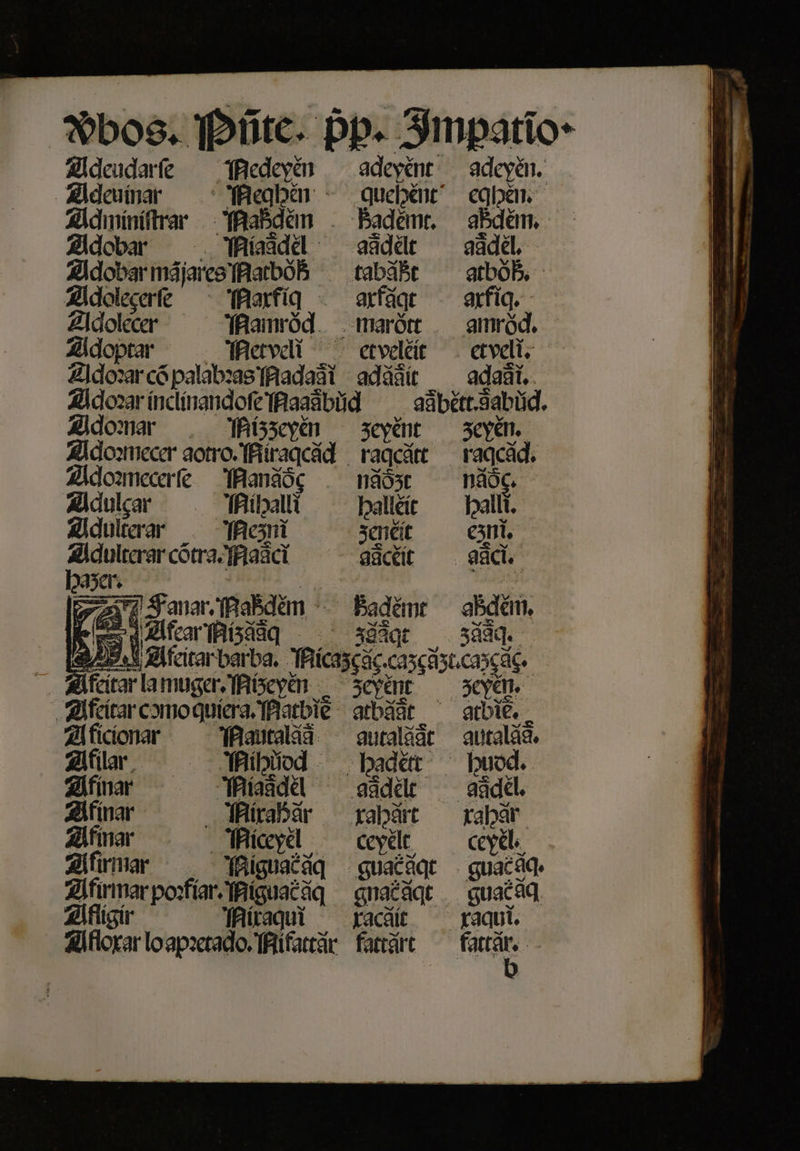 Vbos. Pñte. p̄p. Impatiō
Adeudarse Nedeyēn adeyēnt adeyēn.
Adeuinar Neqhēn quehēnt eqhēn.
Administrar Nahdēm hadēmt. ahdēm.
Adobar Niaãdēl aãdēlt aãdēl.
Adobar májares Narbŏh rabăht arbŏh.
Adoleçerse Narfiq arfăqt arfiq.
Adolecer Namrŏd marŏtt amrŏd.
Adoptar Netveli etveleit etveli.
Adorar cō palabras Nadaãi adãăit adaãi.
Adorar inclinandose Naaãbüd aãbĕtt.ãabüd.
Adornar Nizzeyēn zeyēnt zeyēn.
Adormecer aotro. Niraqcăd raqcătt raqcăd.
Adormecerse Nanãŏç nãŏzt nãŏç.
Adulçar Nihalli halleit halli.
Adulterar Nezni zeneit ezni.
Adulterar cōtra. Naãci aãceit aãci.
hazer.
Fanar. Nahdēm hadēmt ahdēm.
Afear Nizãăq zãăqt zãăq.
Afeitar barba. Nicazçăç.cazçăzt.cazçăç.
Afeitar la muger. Nizeyēn zeyēnt zeyēn.
Afeitar como quiera. Natbiē atbăăt atbiē.
Aficionar Nautalăă autalăăt autalăă.
Afilar. Nihüod hadĕtt huod.
Afinar Niaãdēl aãdēlt aãdēl.
Afinar Nirahăr rahărt rahăr
Afinar Niceyēl ceyēlt ceyēl.
Afirmar Niguatăq guatăqt guatăq.
Afirmar porfiar. Niguatăq gnatăqt guatăq
Afligir Niraqui racăit raqui.
Afloxar lo apretado. Nifattăr fattărt fattăr.
b